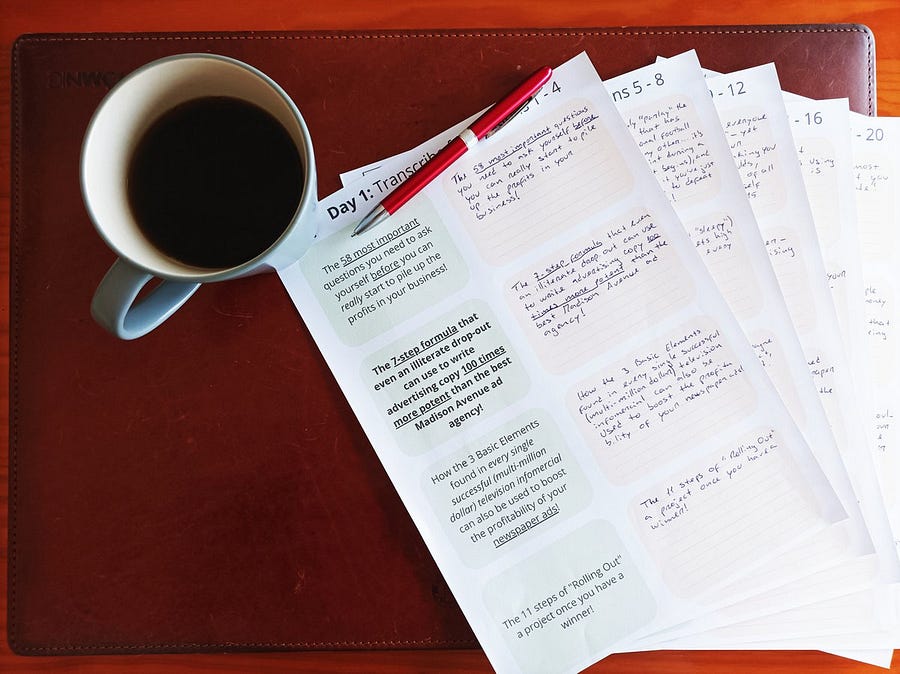 Day 1: Transcribe 1 - 4
The 58 most important
questions you need to ask
yourself before you can
really start to pile up the
profits in your business!
The 58 most important questions
you need to ask yourself before
you can really start to pile
up the profits in your
business!
The 7-step formula that
even an illiterate drop-out
can use to write
advertising copy 100 times
more potent than the best
Madison Avenue ad
agency!
The 7-step formula that even
an illiterate drop-out can use
to write advertising copy 100
times more potent than the
best Madison Avenue ad
agency!
How the 3 Basic Elements
found in every single
successful (multi-million
dollar) television infomercial
can also be used to boost
the profitability of your
newspaper ads!
How the 3 Basic Elements
found in every single successful
(multi-million dollar) television
infomercial can also be
used to boost the profita-
bility of your newspaper ads!
The 11 steps of "Rolling Out"
a project once you have a
winner!
The 11 steps of "Rolling Out"
a project once you have a
winner!
5 - 8
"parlay" the
that has
football
other...
turning a
and
just
to defeat
"sleepy")
high
every
- 12
everyone
yet
you
of all
- 16
using
- 20
most
you